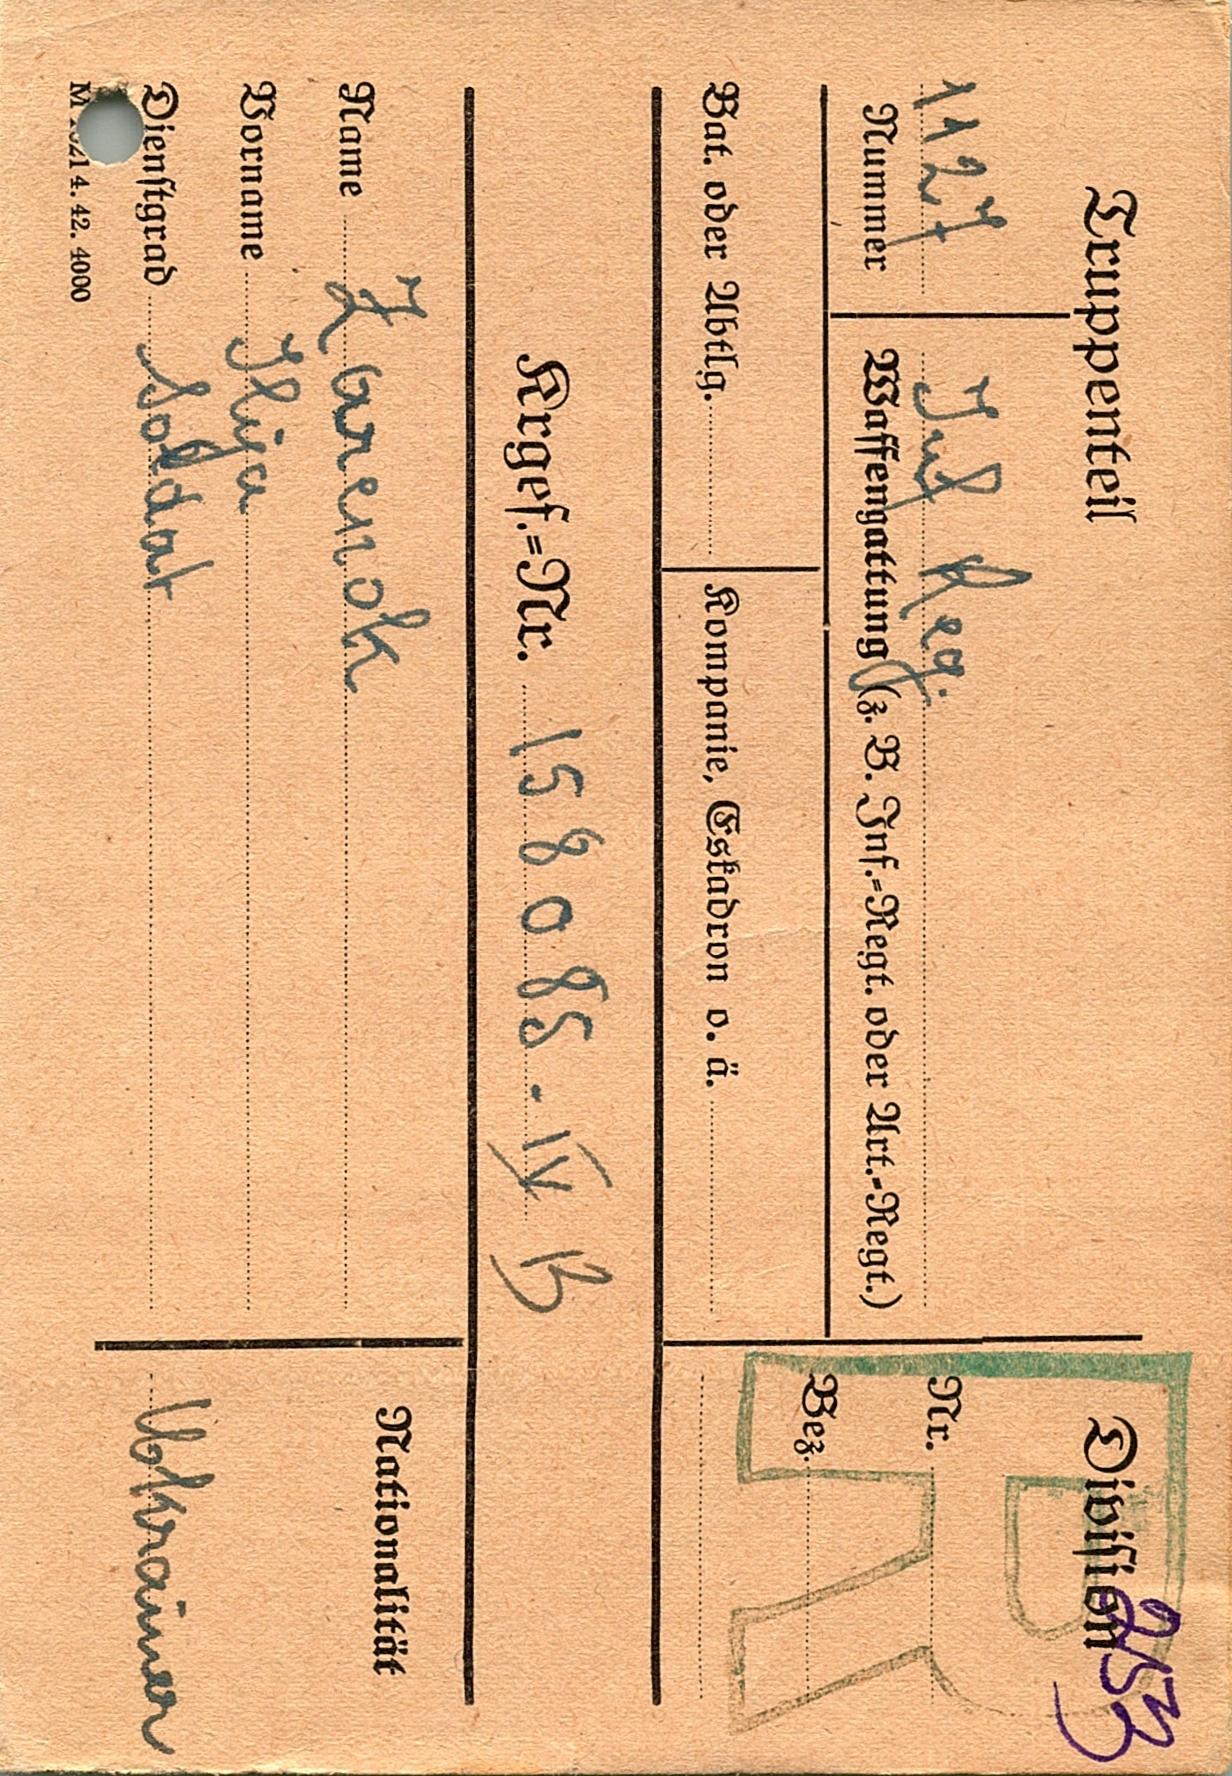 Truppenteil
Division
253
1127 Inf Reg.
Nummer Waffengattung (z. B. Inf.=Regt. oder Art.=Regt.)
Nr.
R
Bez.
Bat. oder Abtlg. Kompanie, Eskadron o. ä.
Krgef.=Nr. 158085-IV B
Name Zarenok
Nationalität
Vorname Ilija
Dienstgrad Soldat
Ukrainer
4. 42. 4000